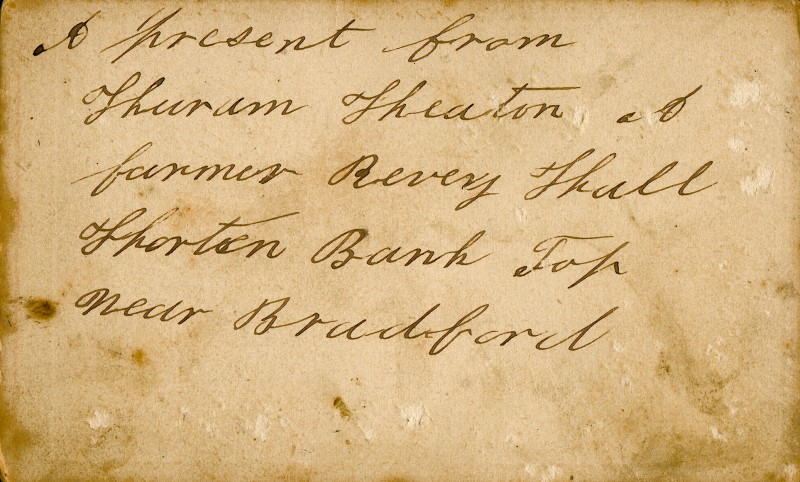 A present from
Thuram Theaton A
farmer Revey Thull
Thorten Bank Top
near Bradford